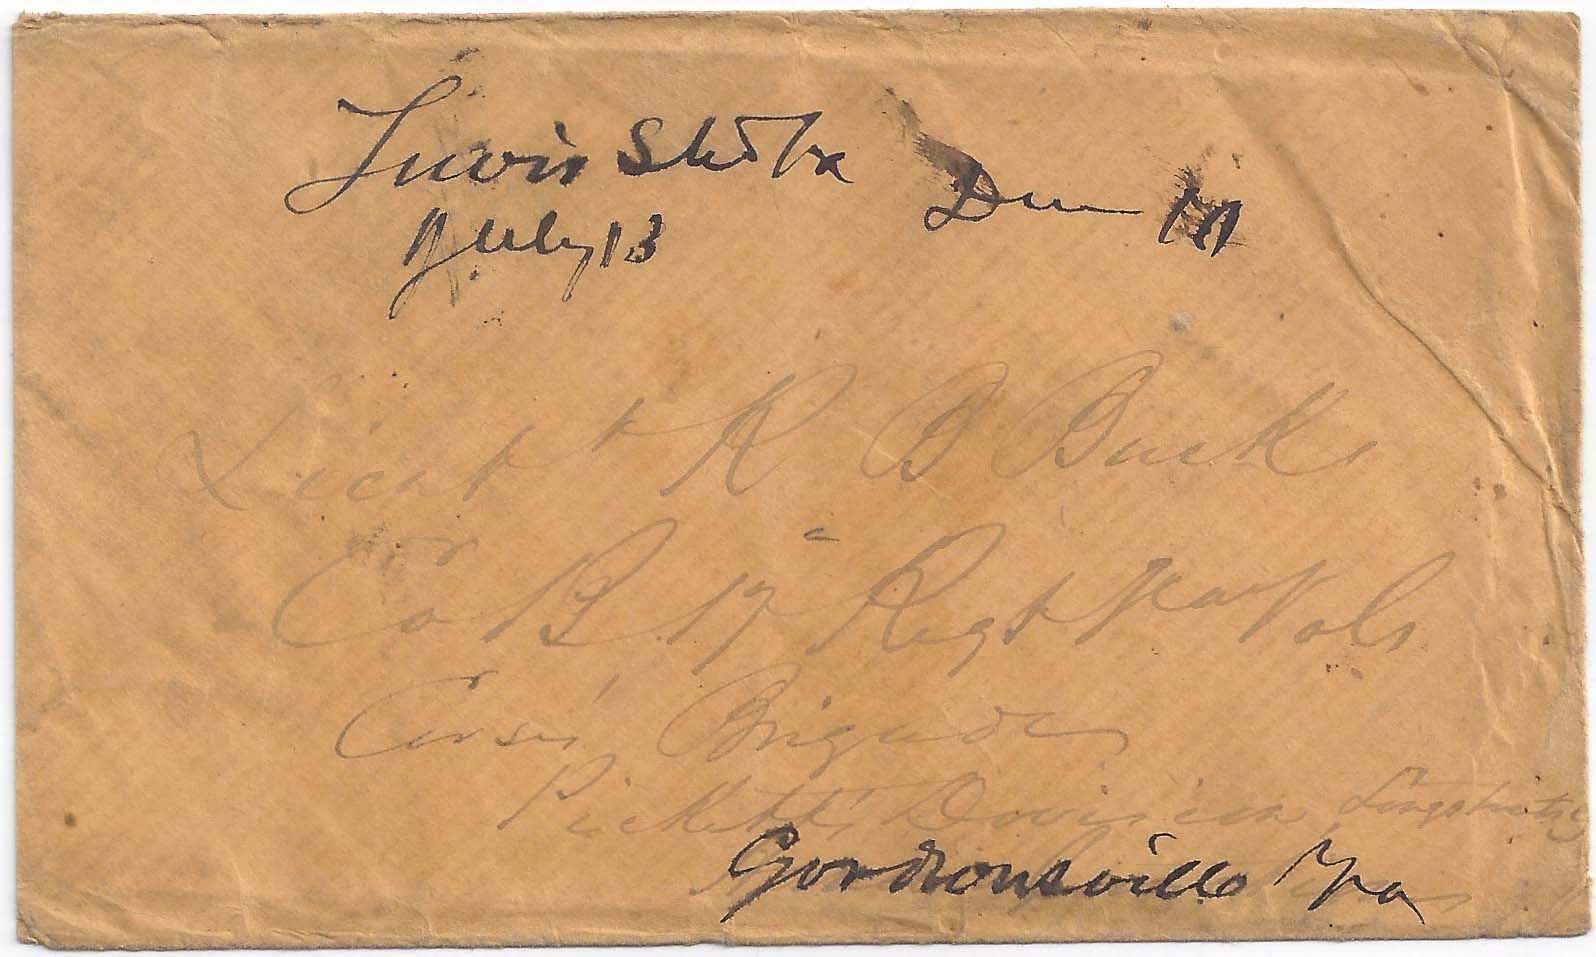 Due 10
July 13
Lieut R B Buck
Co B 17 Regt Va Vols
Corse's Brigade
Picketts Division Longstreets
Gordonsville Va